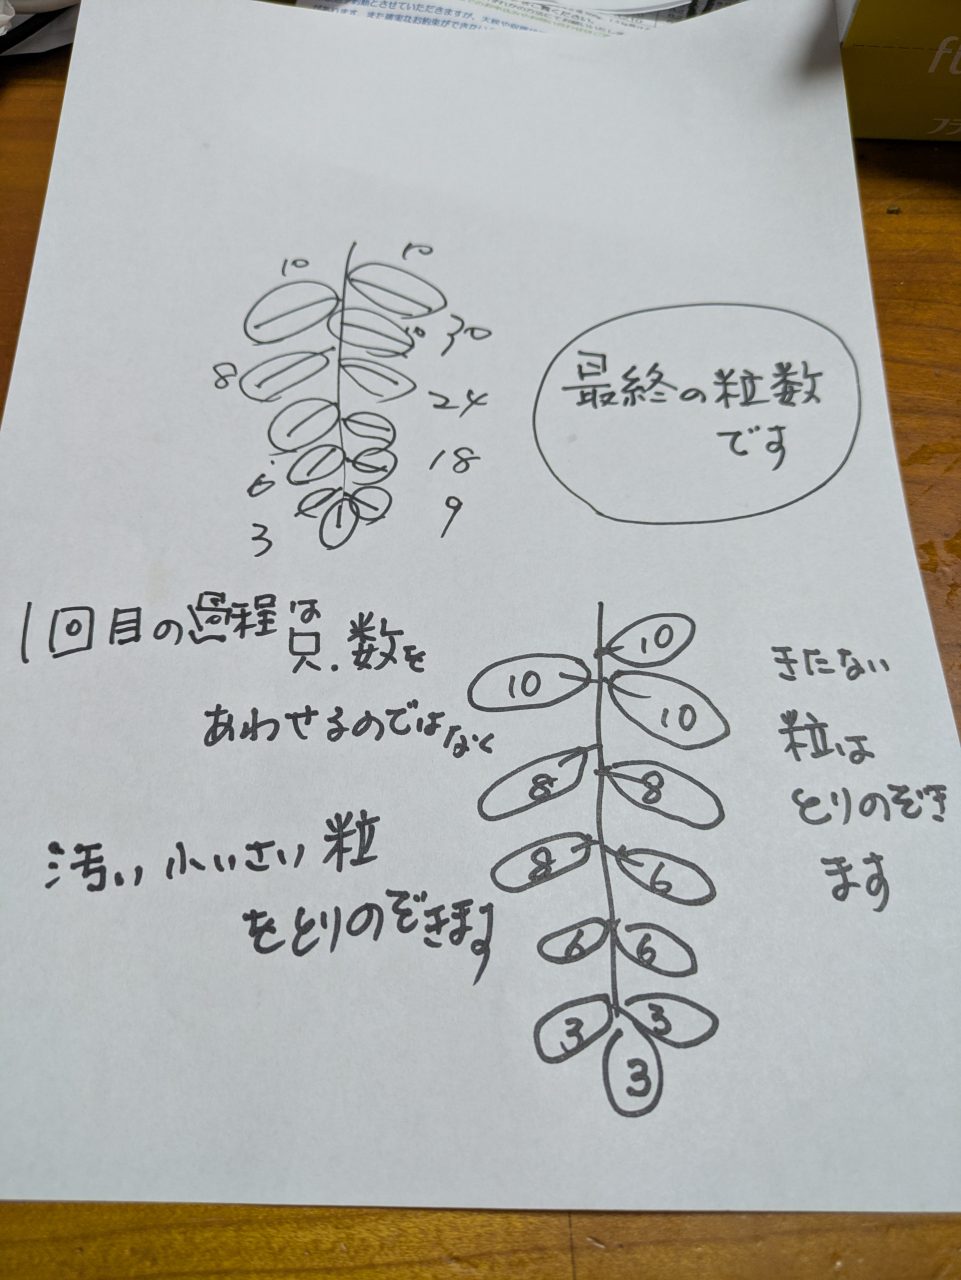 10
10
10
30
8
24
6
18
3
9
最終の粒数
です
1回目の過程は
只、数を
あわせるのではなく
汚い小いさい粒
をとりのぞきます
10
10
10
8
8
8
6
6
6
3
3
3
きたない
粒は
とりのぞき
ます